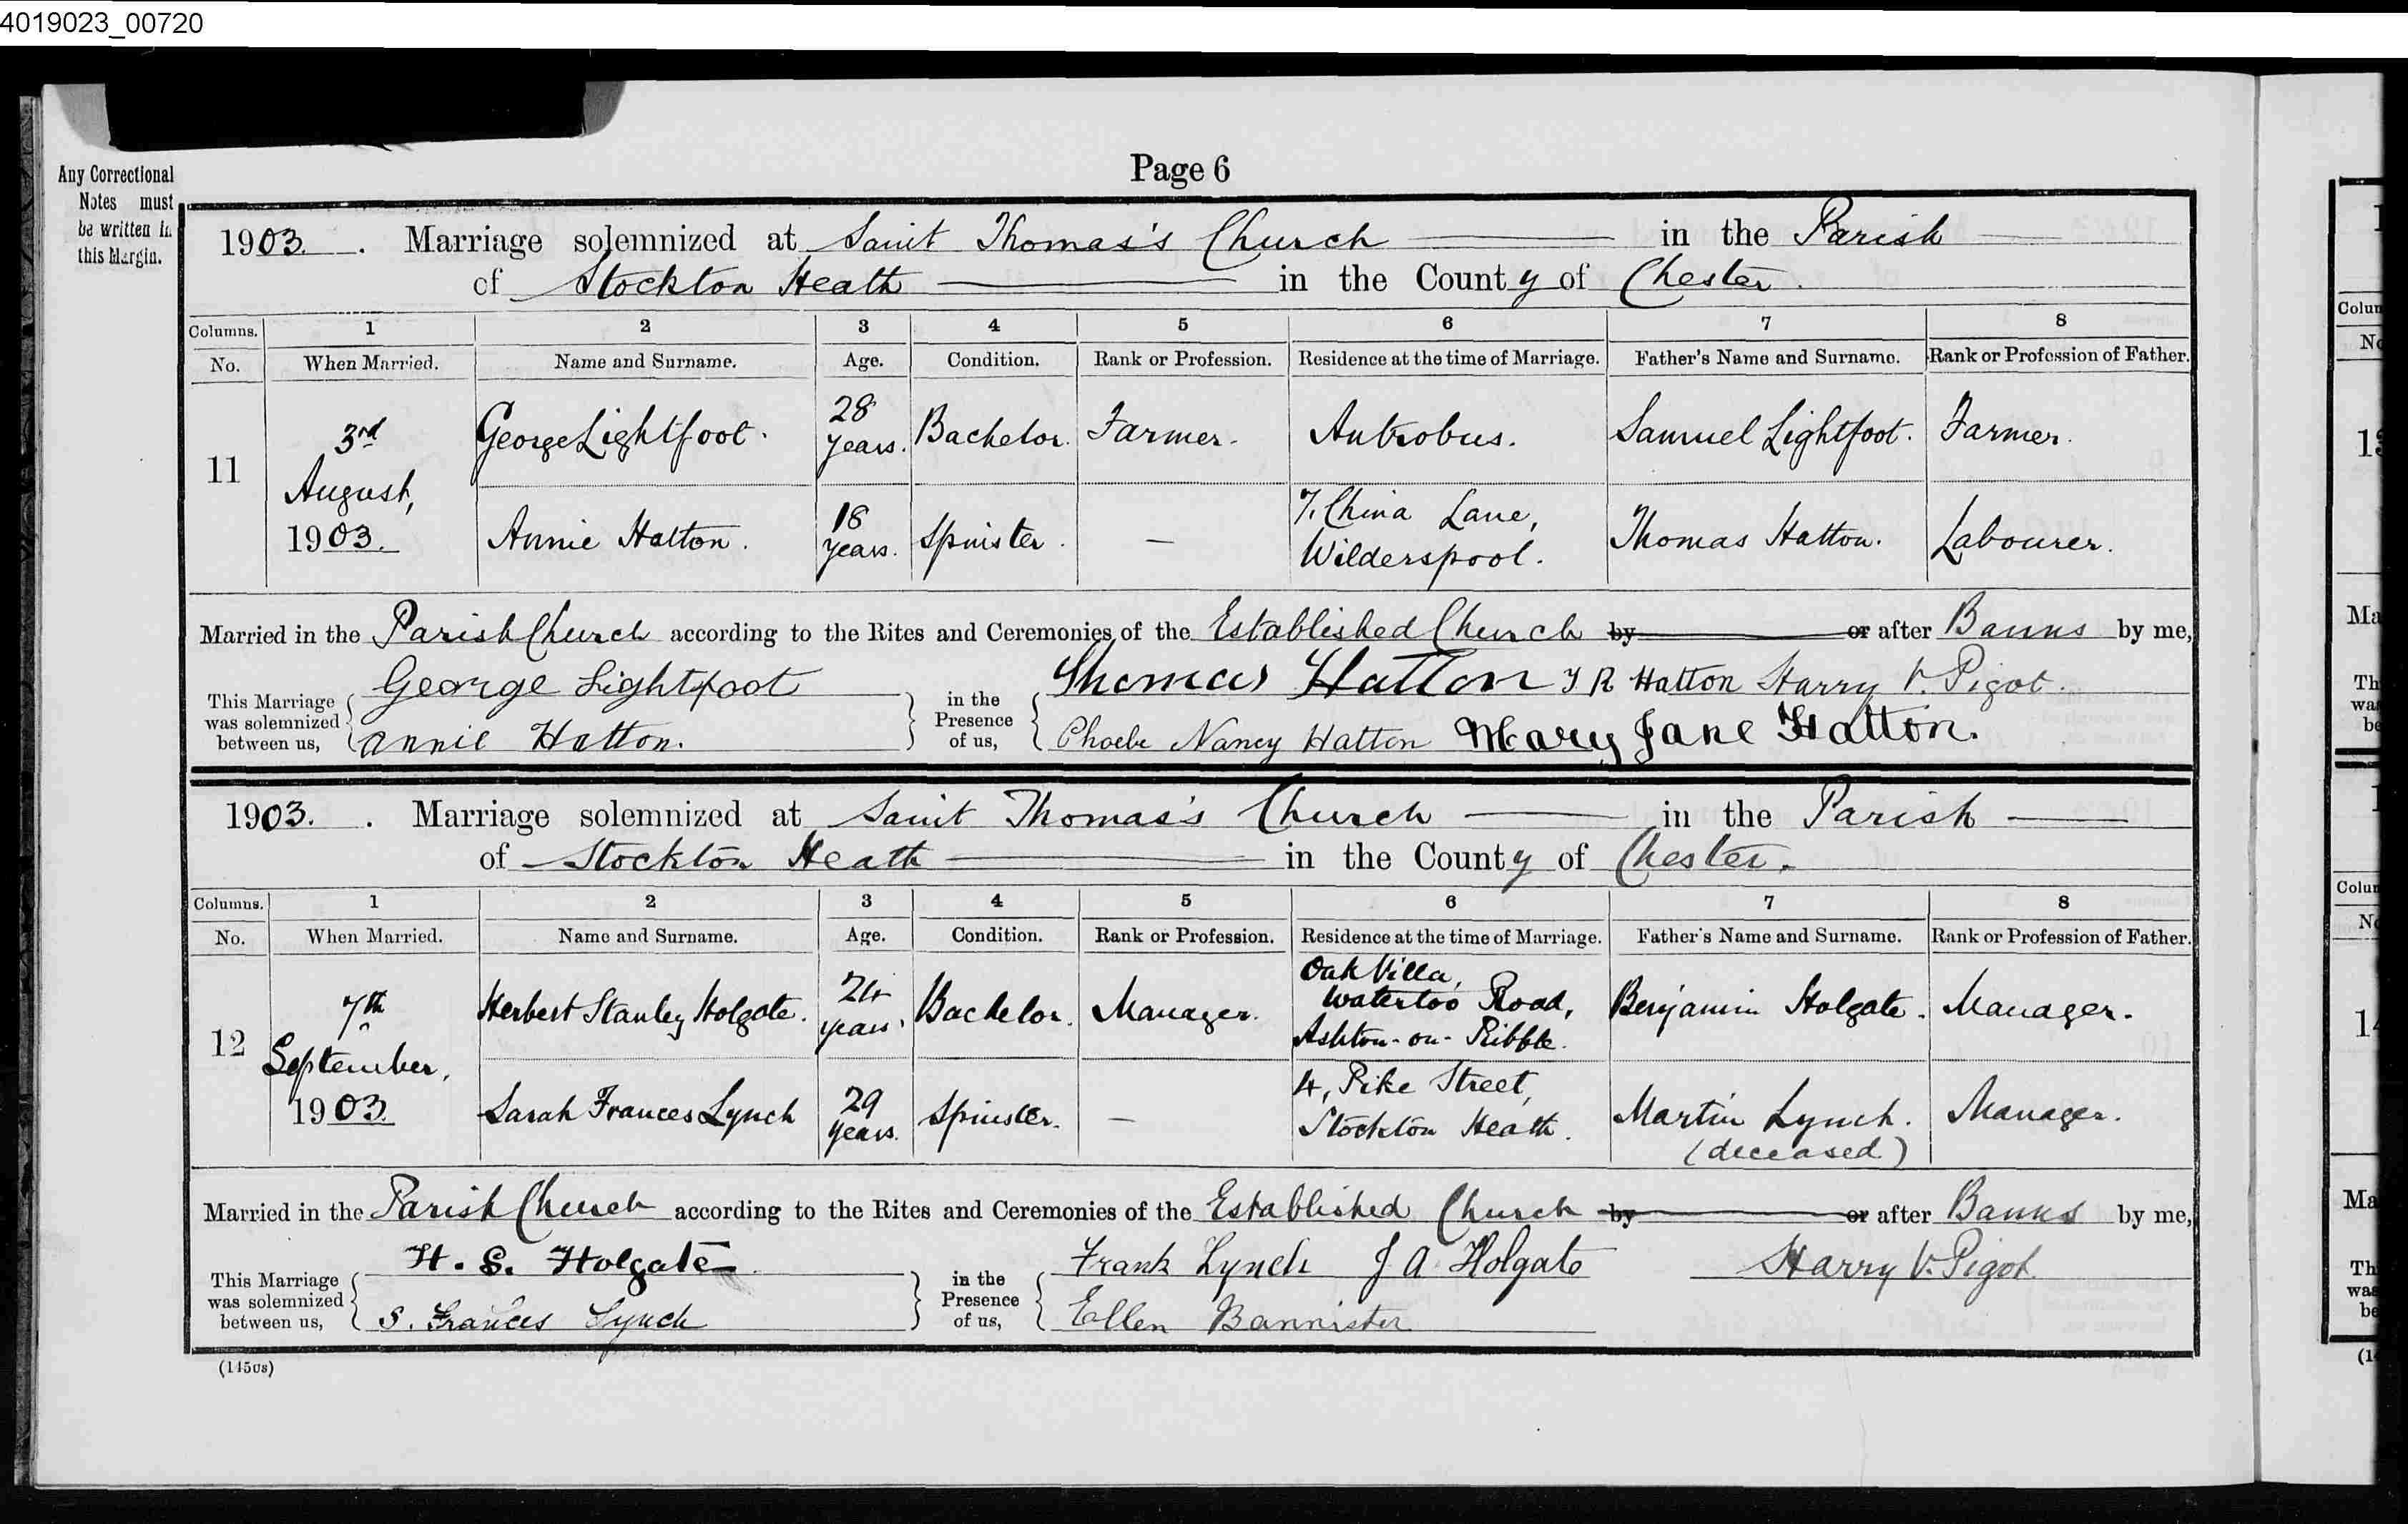 4019023_00720
Page 6
Any Correctional
Notes must
be written in
this Margin.
1903. Marriage solemnized at Saint Thomas's Church in the Parish
of Stockton Heath in the County of Chester.
Columns. 1 2 3 4 5 6 7 8
No. When Married. Name and Surname. Age. Condition. Rank or Profession. Residence at the time of Marriage. Father's Name and Surname. Rank or Profession of Father.
11 3rd August, 1903. George Lightfoot. 28 years. Bachelor. Farmer. Antrobus. Samuel Lightfoot. Farmer.
Annie Hatton. 18 years. Spinster. — 7, China Lane, Wilderspool. Thomas Hatton. Labourer.
Married in the Parish Church according to the Rites and Ceremonies of the Established Church by or after Banns by me,
This Marriage was solemnized between us, George Lightfoot in the Presence of us, Thomas Hatton T R Hatton Harry V. Pigot.
Annie Hatton. Phoebe Nancy Hatton Mary Jane Hatton.
1903. Marriage solemnized at Saint Thomas's Church in the Parish
of Stockton Heath in the County of Chester.
Columns. 1 2 3 4 5 6 7 8
No. When Married. Name and Surname. Age. Condition. Rank or Profession. Residence at the time of Marriage. Father's Name and Surname. Rank or Profession of Father.
12 7th September, 1903. Herbert Stanley Holgate. 24 years. Bachelor. Manager. Oak Villa, Waterloo Road, Ashton-on-Ribble. Benjamin Holgate. Manager.
Sarah Frances Lynch 29 years. Spinster. — 4, Pike Street, Stockton Heath. Martin Lynch. (deceased) Manager.
Married in the Parish Church according to the Rites and Ceremonies of the Established Church by or after Banns by me,
This Marriage was solemnized between us, H. S. Holgate in the Presence of us, Frank Lynch J A Holgate Harry V. Pigot
S. Frances Lynch Ellen Bannister
(1450s)